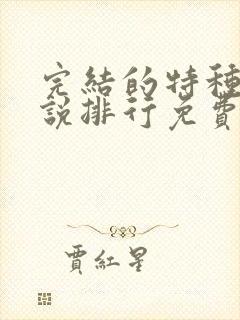 完結的特種
說排行免費
賈紅星